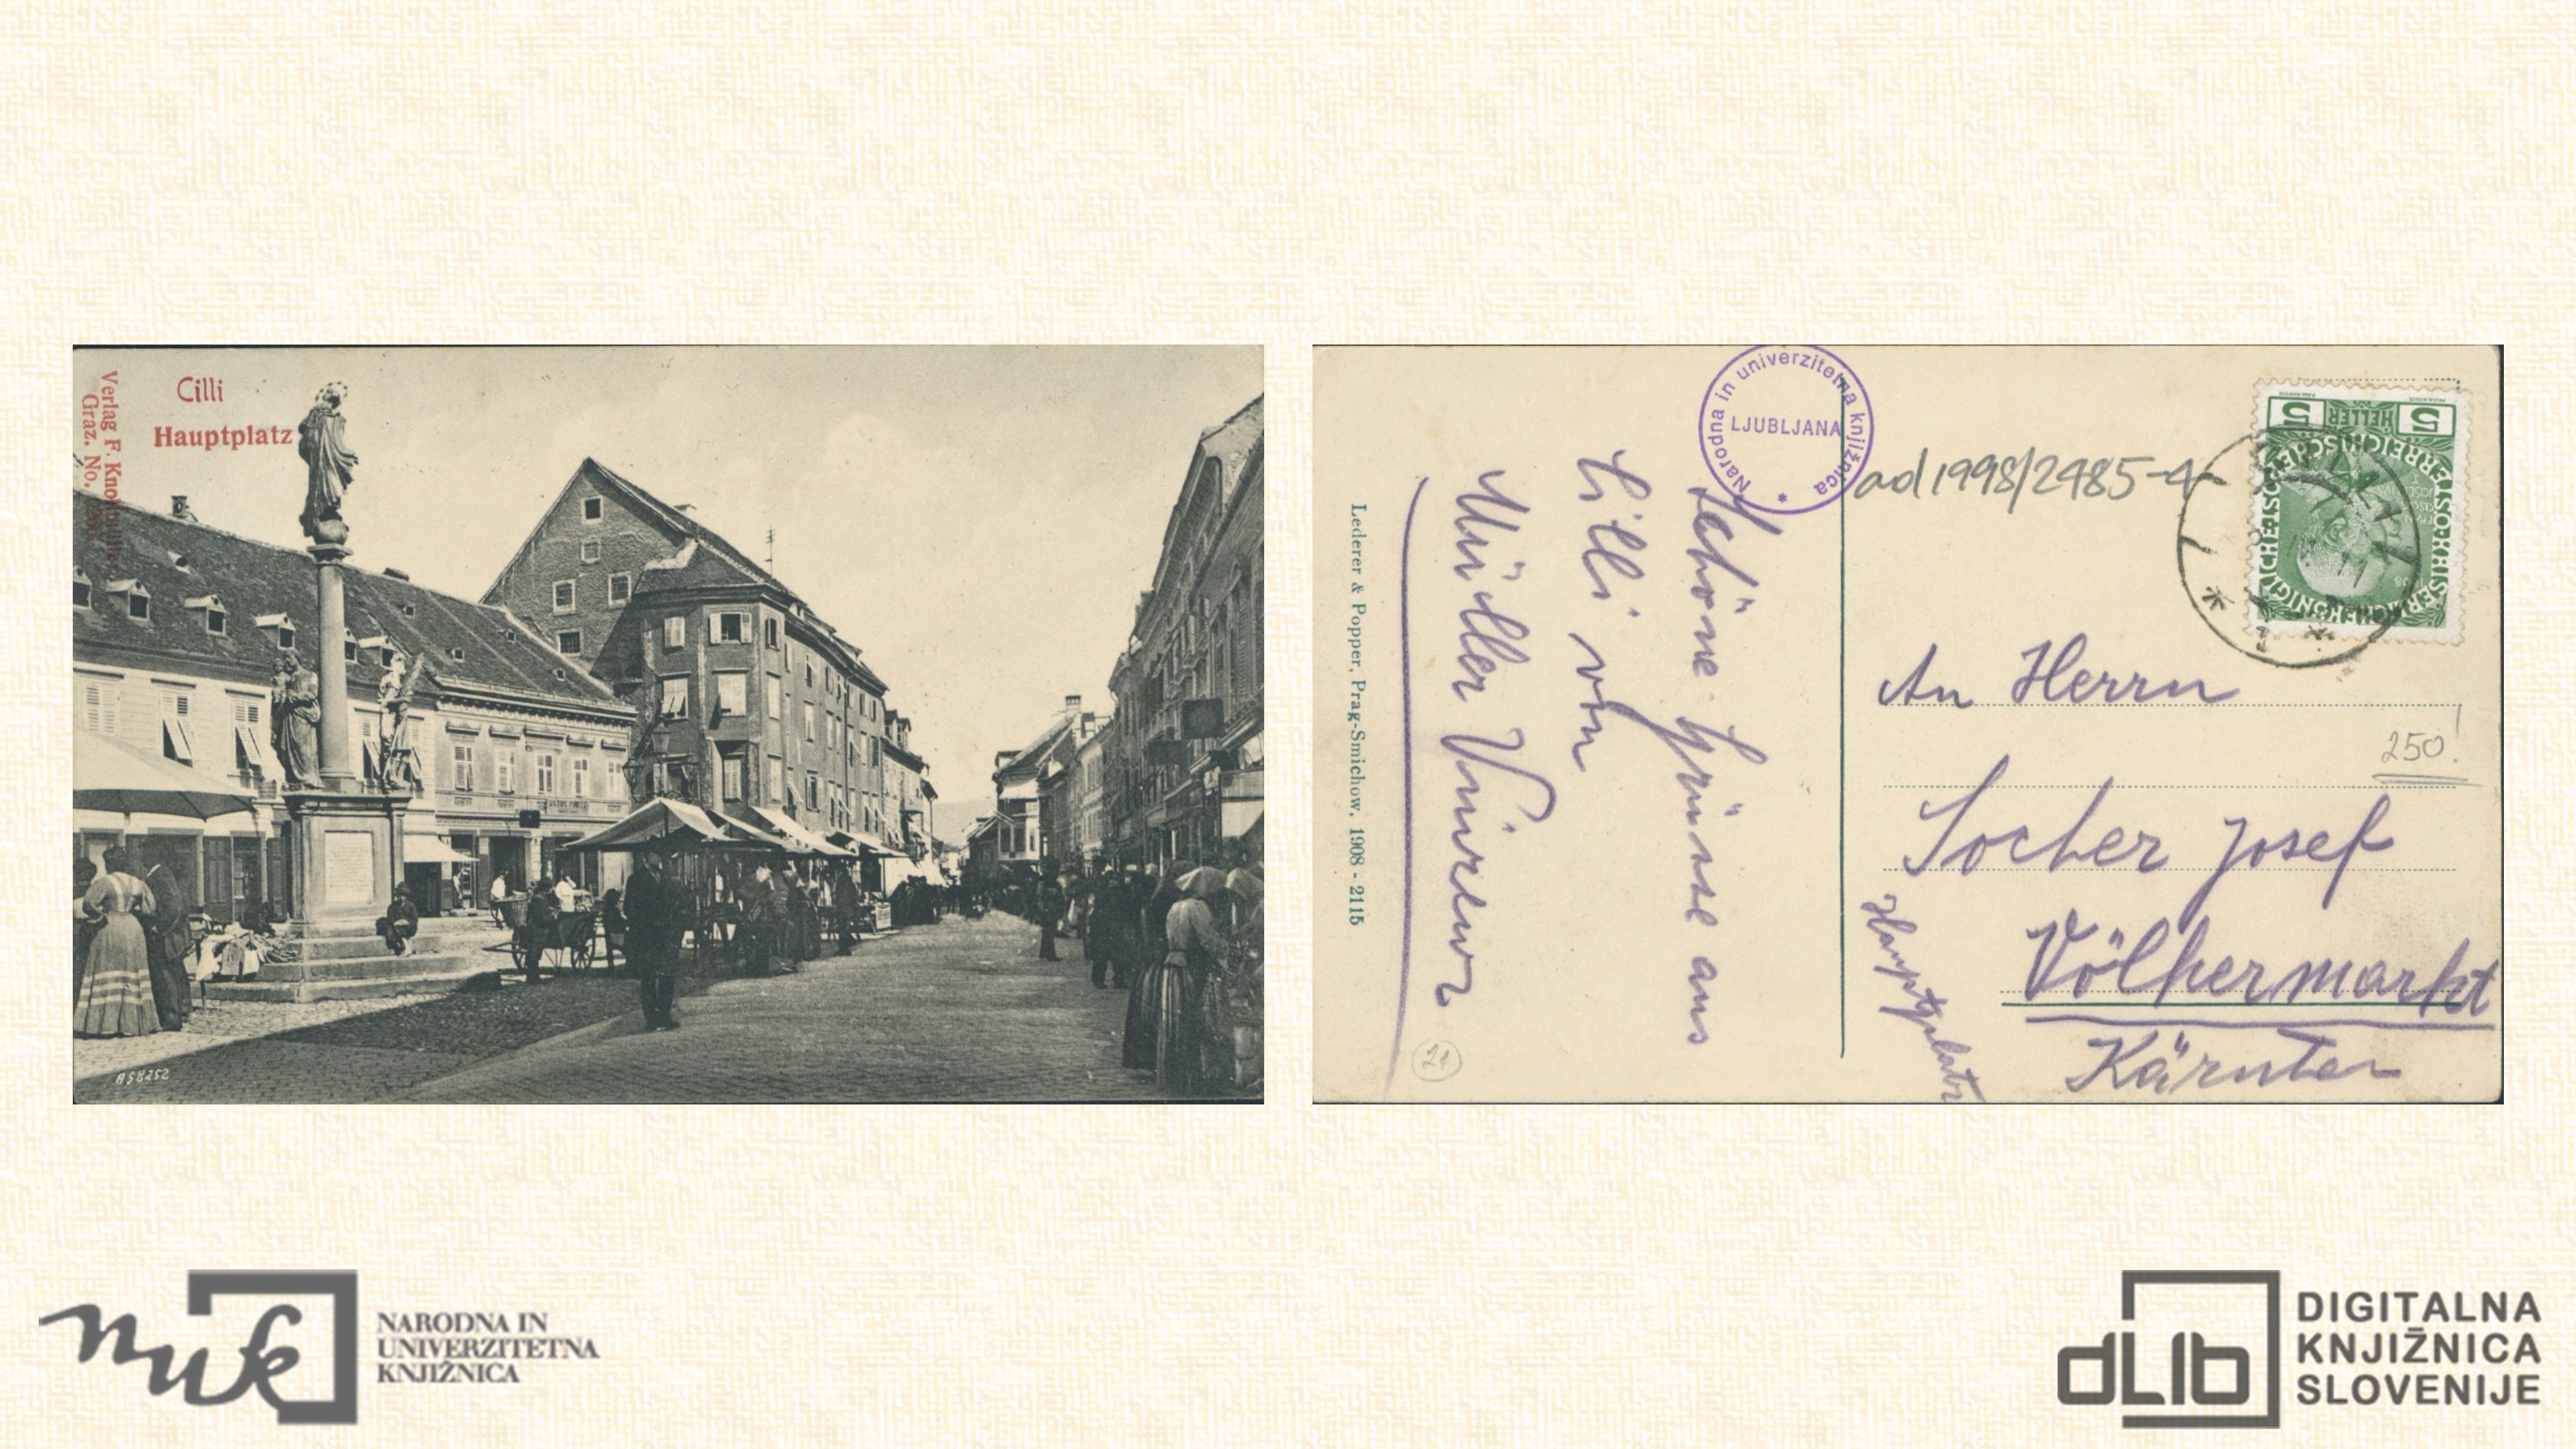 Cilli
Hauptplatz
Verlag F. Knollmüller
Graz. No.
A 58252
Narodna in univerzitetna knjižnica
LJUBLJANA
ad 1998/2485-4
Schöne Grüsse aus
Cilli von
Müller
Lederer & Popper, Prag-Smichow. 1908 - 2115
21
5 HELLER 5
An Herrn
250!
Socher Josef
Völkermarkt
Hauptplatz
Kärnten
nuk
NARODNA IN
UNIVERZITETNA
KNJIŽNICA
dLib
DIGITALNA
KNJIŽNICA
SLOVENIJE